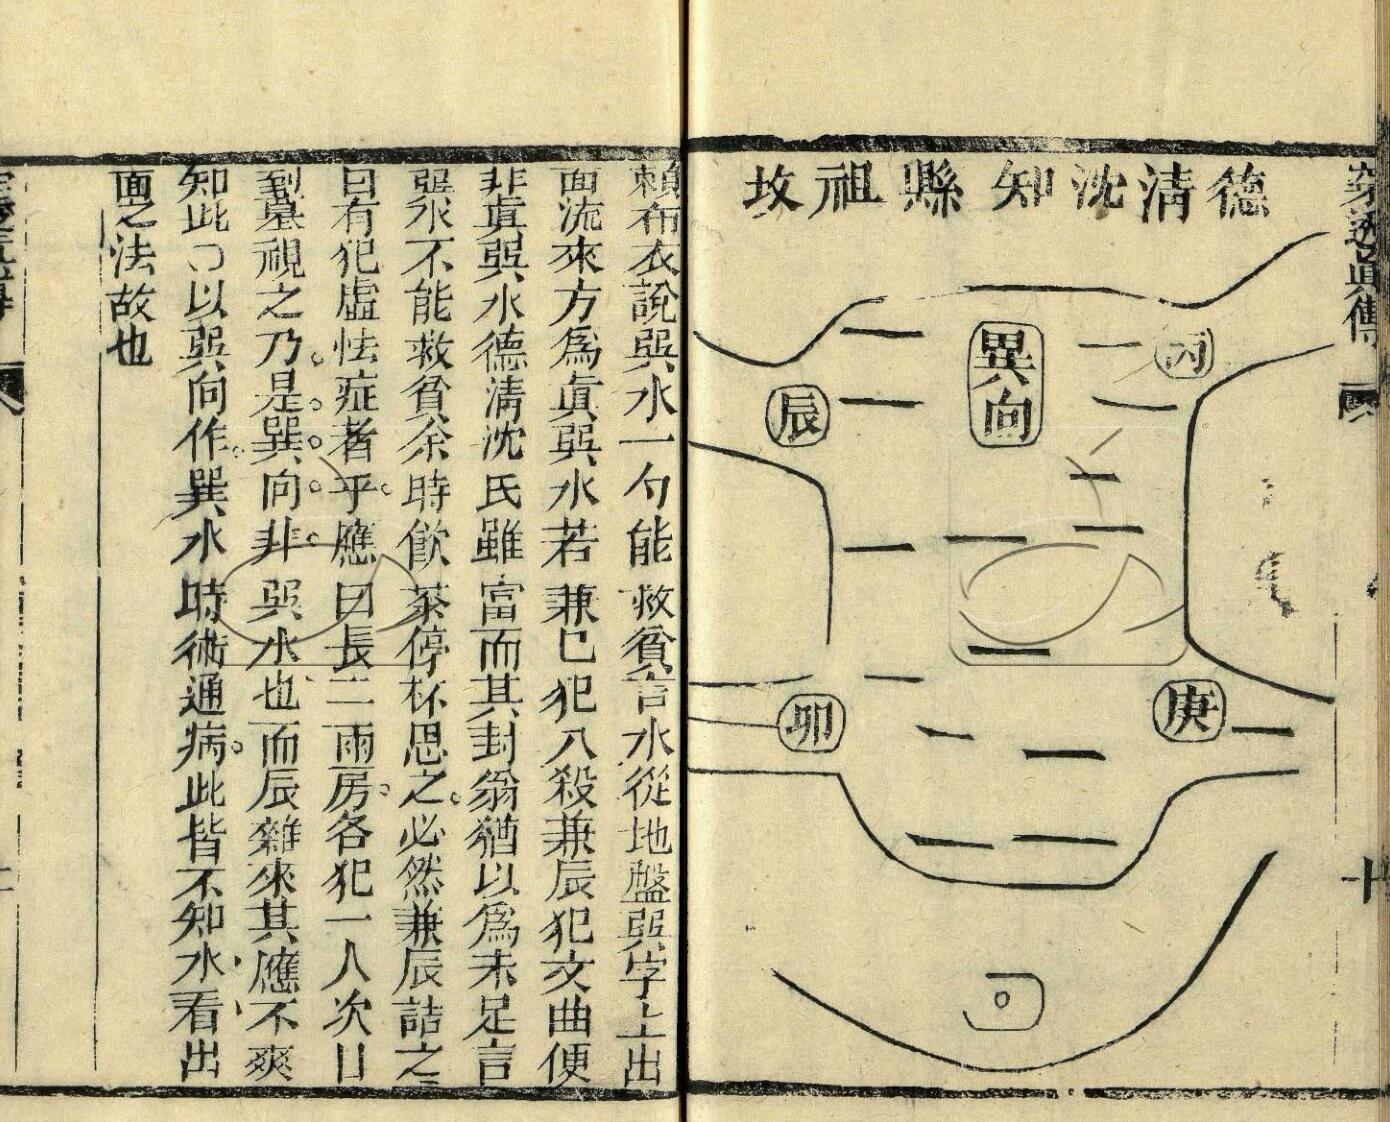 穿透眞傳
十
德清沈知縣祖坟
丙
巽向
辰
庚
卯
賴布衣說巽水一勺能救貧言水從地盤巽字上出
面流來方爲眞巽水若兼巳犯八殺兼辰犯文曲便
非眞巽水德清沈氏雖富而其封翁猶以爲未足言
巽水不能救貧余時飲茶停杯思之必然兼辰詰之
曰有犯虛怯症者乎應曰長二兩房各犯一人次日
到墓視之乃是巽向非巽水也而辰雜來其應不爽
知此○以巽向作巽水時術通病此皆不知水看出
面之法故也